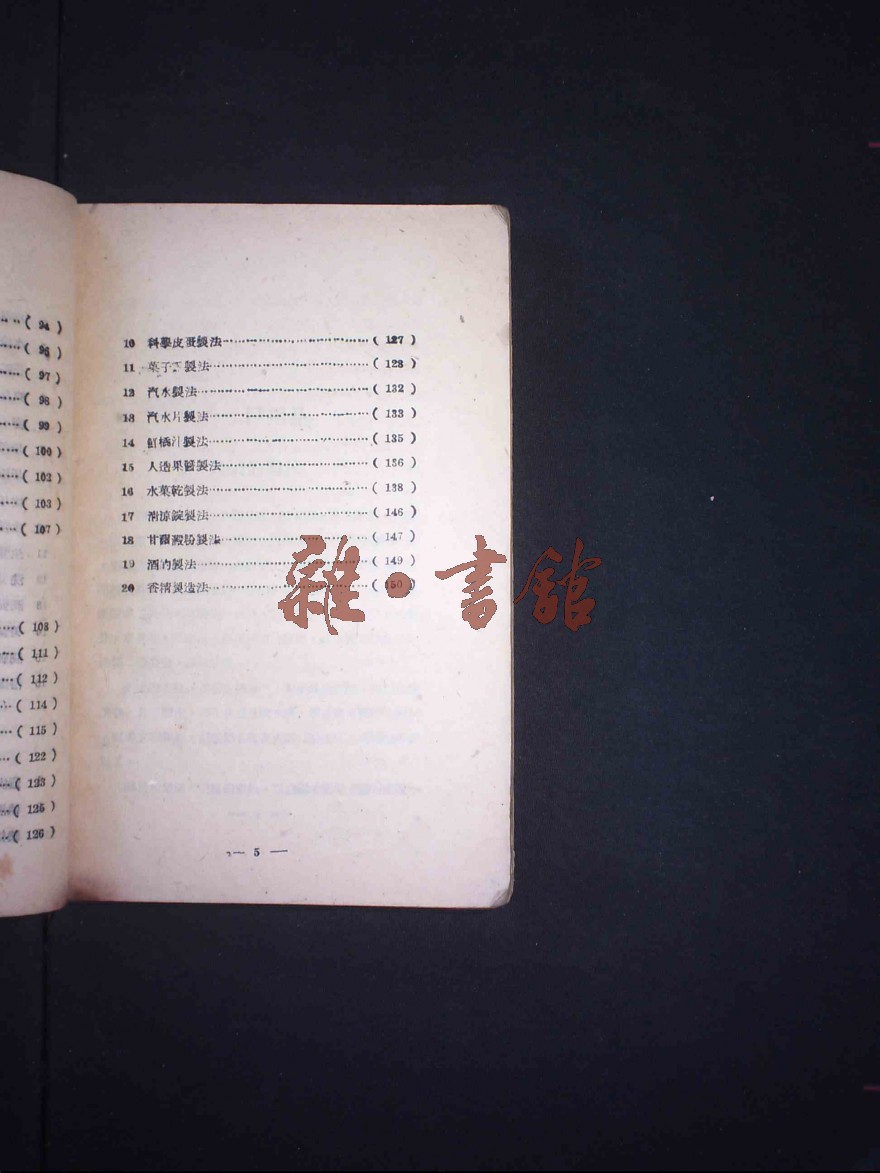 ( 94 )
( 96 )
( 97 )
( 98 )
( 99 )
( 100 )
( 102 )
( 103 )
( 107 )
( 108 )
( 111 )
( 112 )
( 114 )
( 115 )
( 122 )
( 123 )
( 125 )
( 126 )
10 科學皮蛋製法……………………( 127 )
11 菓子 製法……………………( 128 )
12 汽水製法……………………( 132 )
13 汽水片製法……………………( 133 )
14 鮮橘汁製法……………………( 135 )
15 人造果醬製法……………………( 136 )
16 水菓乾製法……………………( 138 )
17 清涼錠製法……………………( 146 )
18 甘 澱粉製法……………………( 147 )
19 酒 製法……………………( 149 )
20 香精製造法……………………( 150 )
— 5 —
雜·書館